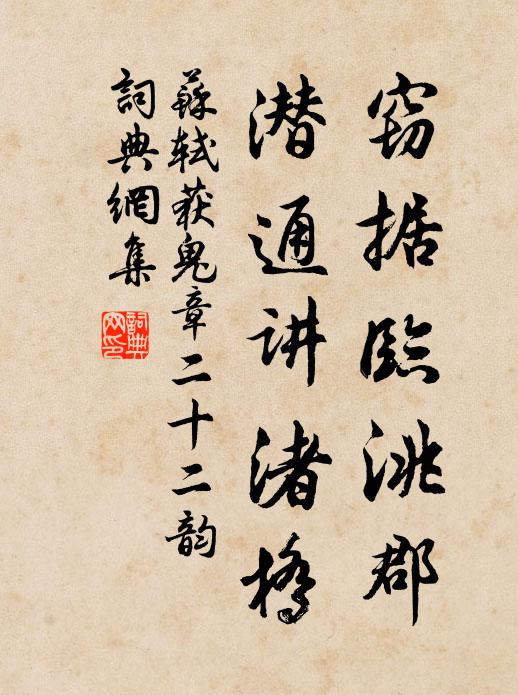 窃据临洮郡
潜通讲渚桥
蘇軾获鬼章二十二韵
詞典網集
詞典網印